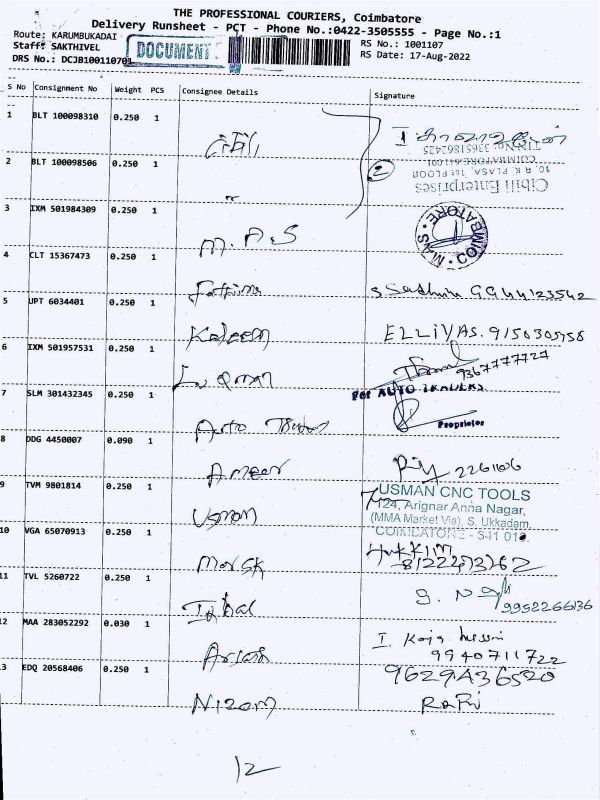 THE PROFESSIONAL COURIERS, Coimbatore
Delivery Runsheet - PCT - Phone No.:0422-3505555 - Page No.:1
Route: KARUMBUKADAI
Staff: SAKTHIVEL
DRS No.: DCJB100110701
DOCUMENT
RS No.: 1001107
RS Date: 17-Aug-2022
S No Consignment No Weight PCS Consignee Details Signature
1 BLT 100098310 0.250 1
2 BLT 100098506 0.250 1 2
Cibili Enterprises
10, R.K. PLASA, 1st FLOOR
COIMBATORE-641001
TIN No: 33651862425
3 IXM 501984309 0.250 1 M.A.S
M.A.S. COIMBATORE
4 CLT 15367473 0.250 1 Fathima 9944123542
5 UPT 6034401 0.250 1 Kaleem ELLIYAS. 9150305758
6 IXM 501957531 0.250 1 Luqman 9367777727
7 SLM 301432345 0.250 1 Auto
For AUTO TRADERS
Proprietor
8 DDG 4450007 0.090 1 Ameer 2261106
9 TVM 9801814 0.250 1 Usman
USMAN CNC TOOLS
124, Arignar Anna Nagar,
(MMA Market Via), S. Ukkadam,
COIMBATORE - 641 01
10 VGA 65070913 0.250 1 HAKKIM
11 TVL 5260722 0.250 1 Iqbal 9952266136
12 MAA 283052292 0.030 1 I. Kaja hussain
9940711722
13 EDQ 20568406 0.250 1 Nizam 9629436520
Rafi
12